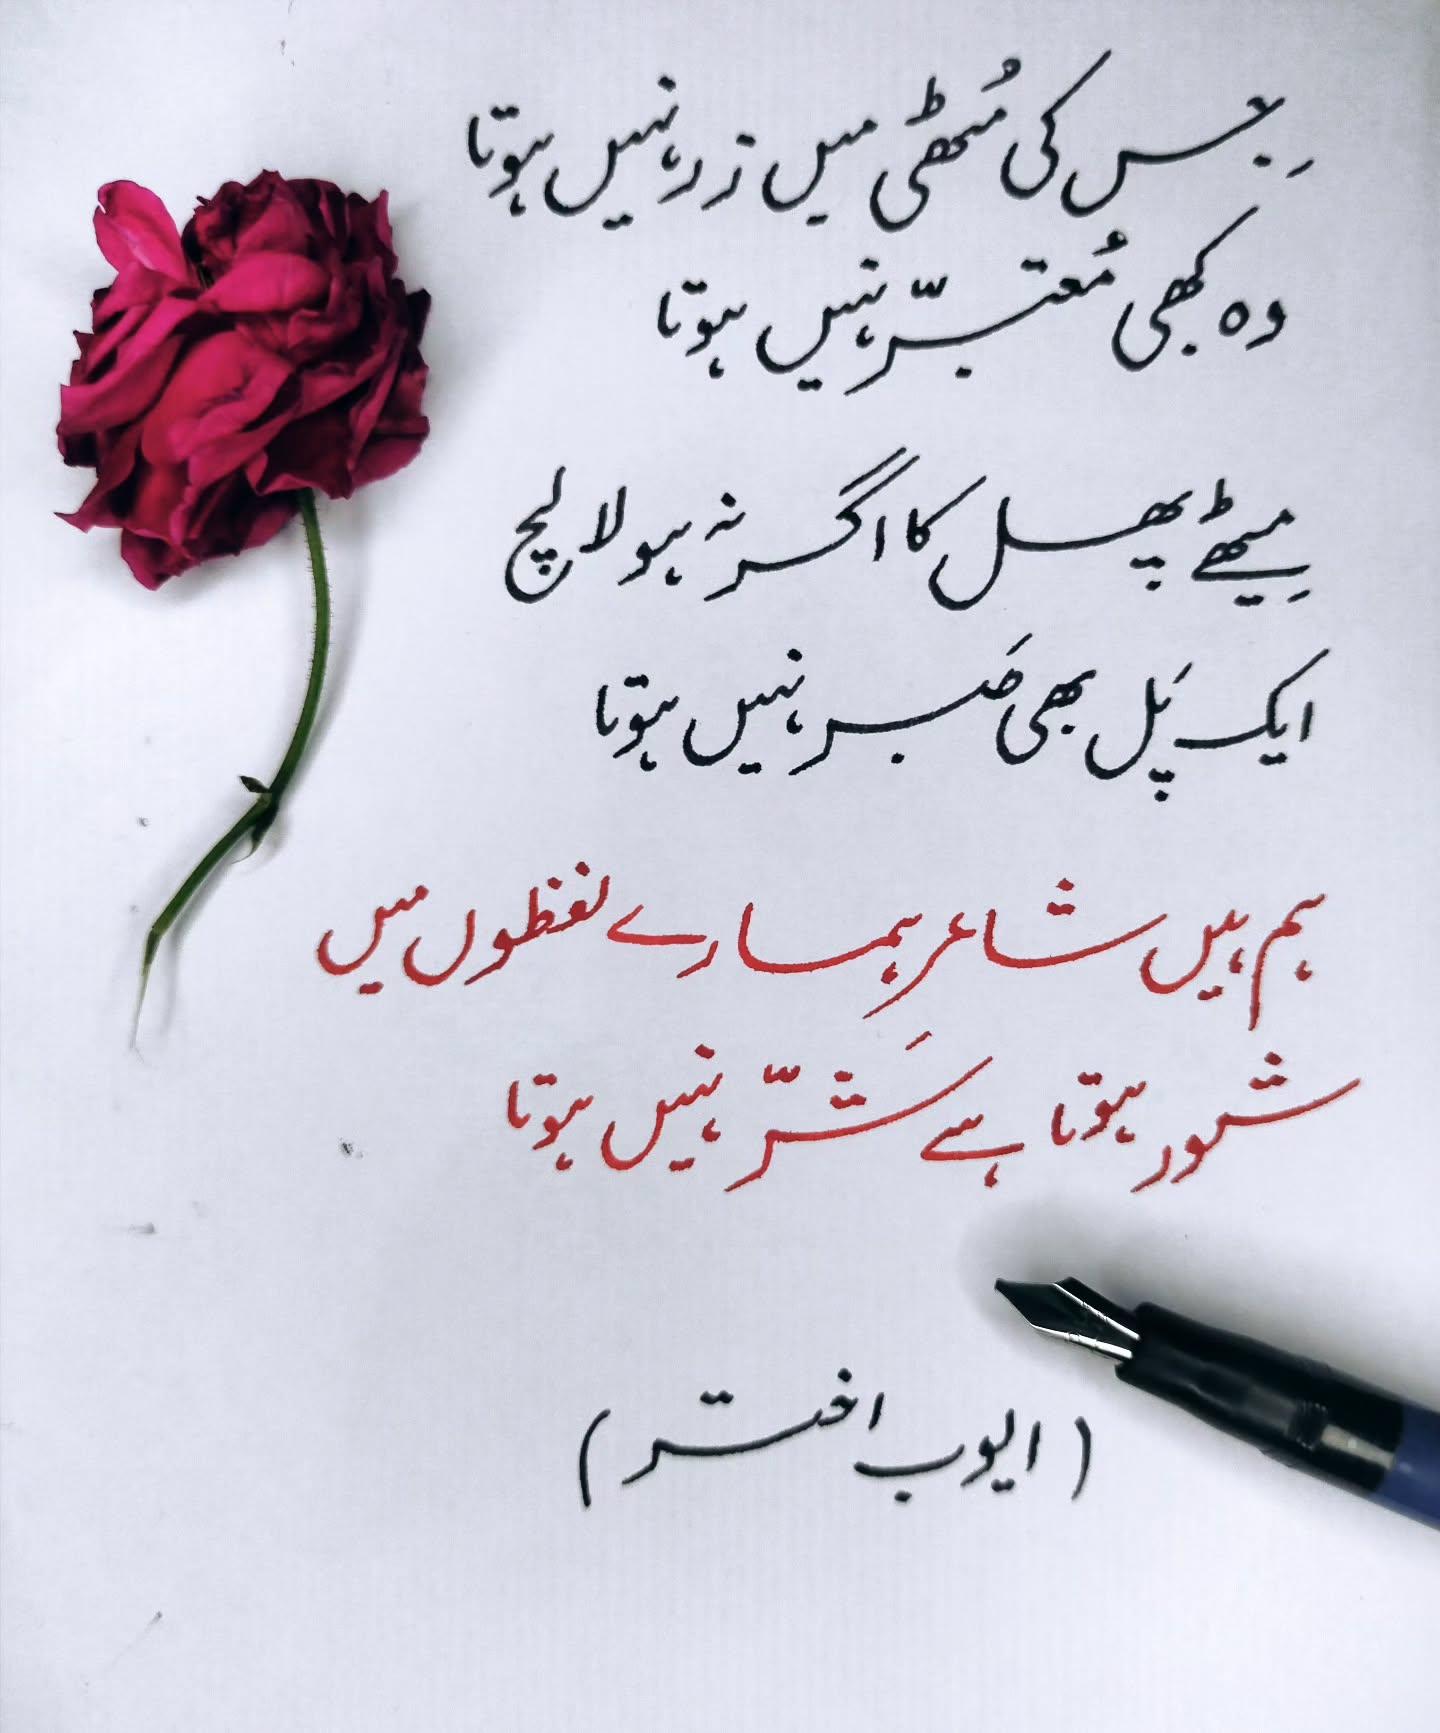 جِس کی مُٹھی میں زر نہیں ہوتا
وہ کبھی مُعتبرّ نہیں ہوتا
مِیٹھے پھل کا اگر نہ ہو لالچ
ایک پَل بھی صَبر نہیں ہوتا
ہم ہیں شاعر ہمارے لفظوں میں
شور ہوتا ہے شَرّ نہیں ہوتا
(ایوب اختر)